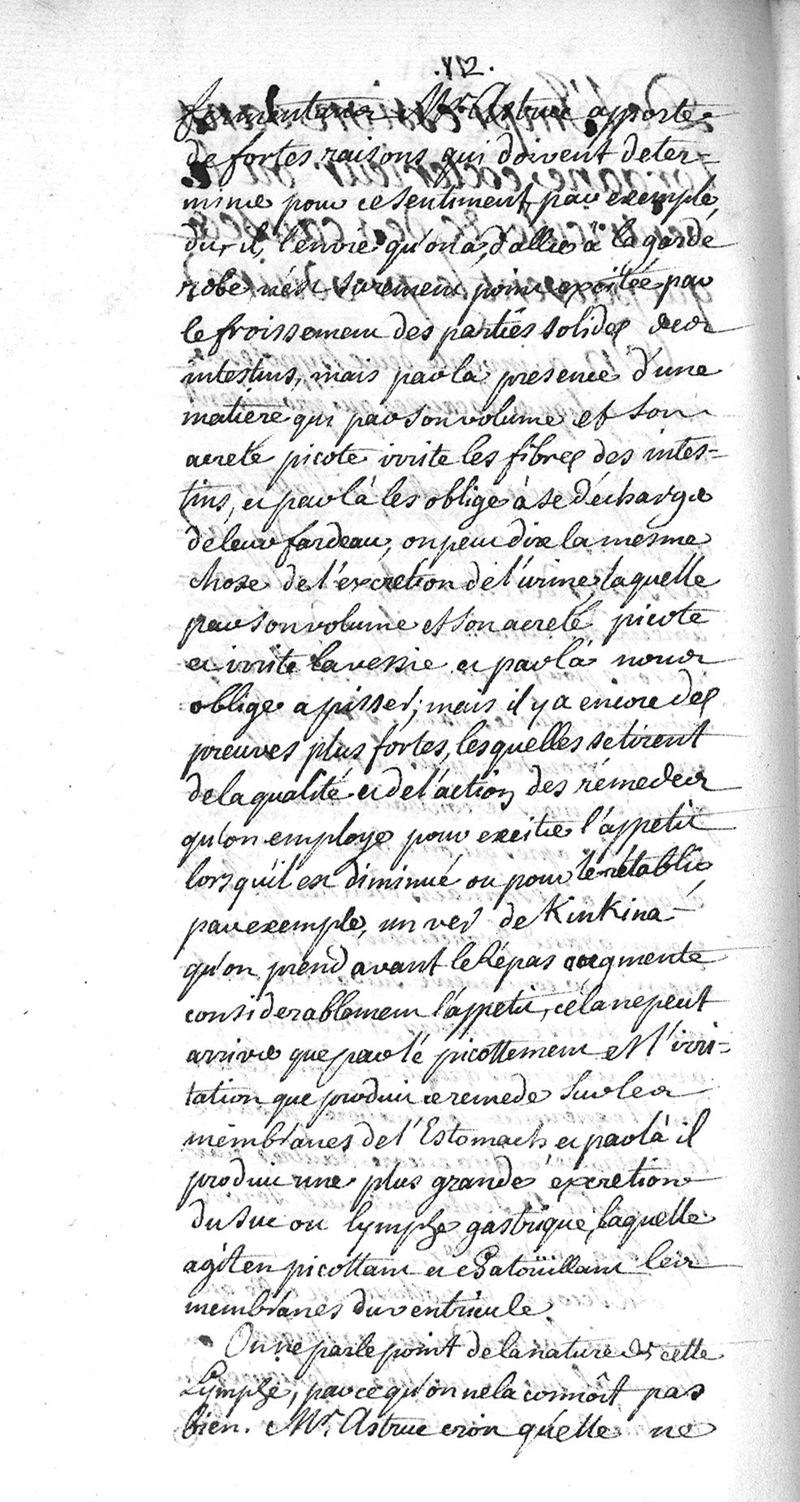 .112.
fermentateur. Mr. Astruc apporte
de fortes raisons qui doivent deter=
miner pour ce sentiment, par exemple,
dit, il, l'envie qu'on a, d'aller à la garde
robe n'est surement point excitée par
le froissement des parties solides des
intestins, mais par la presence d'une
matiere qui par son volume et son
acreté picote irrite les fibres des intes=
tins, et par là les oblige à se décharger
de leur fardeau, on peut dire la mesme
chose de l'excretion de l'urine, laquelle
par son volume et son acreté picote
et irrite la vessie et par là nous
oblige a pisser; mais il y a encore des
preuves plus fortes, lesquelles se tirent
de la qualité et de l'action des rémedes
qu'on employe pour exciter l'appetit
lorsqu'il est diminué ou pour le rétablir
par exemple, un ver de Kinkina
qu'on prend avant le Répas augmente
considerablement l'appetit, céla ne peut
arriver que par lé picottement et l'irri=
tation que produit ce remede sur les
membranes de l'Estomach et par là il
produit une plus grande éxcretion
du suc ou lymphe gastrique, laquelle
agit en picottant et chatoüillant les
membranes du ventricule.
On ne parle point de la nature de cette
Lymphe, parce qu'on ne la connôit pas
bien. Mr. Astruc croit qu'elle ne